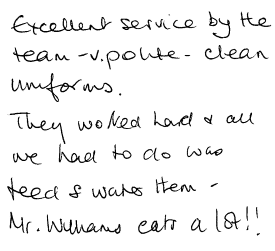 Excellent service by the
team - v. polite - clean
uniforms.
They worked hard & all
we had to do was
feed & water them -
Mr. Williams eats a lot!!